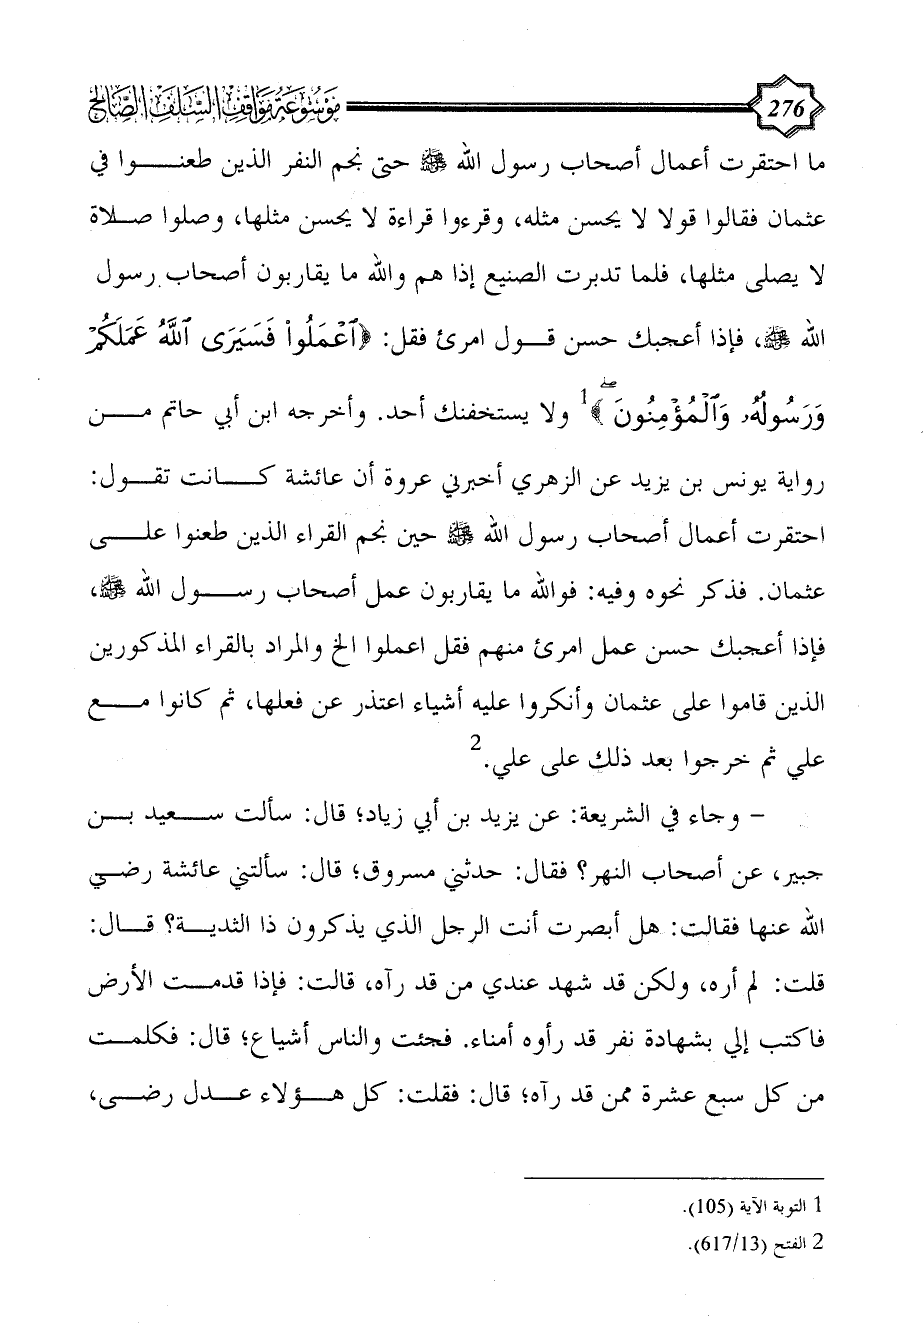 276 موسوعة مواقف السلف الصالح
ما احتقرت أعمال أصحاب رسول الله ﷺ حتى نجم النفر الذين طعنوا في
عثمان فقالوا قولا لا يحسن مثله، وقرءوا قراءة لا يحسن مثلها، وصلوا صلاة
لا يصلى مثلها، فلما تدبرت الصنيع إذا هم والله ما يقاربون أصحاب رسول
الله ﷺ، فإذا أعجبك حسن قول امرئ فقل: ﴿ٱعْمَلُوا۟ فَسَيَرَى ٱللَّهُ عَمَلَكُمْ
وَرَسُولُهُۥ وَٱلْمُؤْمِنُونَ ۖ﴾1 ولا يستخفنك أحد. وأخرجه ابن أبي حاتم من
رواية يونس بن يزيد عن الزهري أخبرني عروة أن عائشة كانت تقول:
احتقرت أعمال أصحاب رسول الله ﷺ حين نجم القراء الذين طعنوا على
عثمان. فذكر نحوه وفيه: فوالله ما يقاربون عمل أصحاب رسول الله ﷺ،
فإذا أعجبك حسن عمل امرئ منهم فقل اعملوا الخ والمراد بالقراء المذكورين
الذين قاموا على عثمان وأنكروا عليه أشياء اعتذر عن فعلها، ثم كانوا مع
علي ثم خرجوا بعد ذلك على علي.2
- وجاء في الشريعة: عن يزيد بن أبي زياد؛ قال: سألت سعيد بن
جبير، عن أصحاب النهر؟ فقال: حدثني مسروق؛ قال: سألتني عائشة رضي
الله عنها فقالت: هل أبصرت أنت الرجل الذي يذكرون ذا الثدية؟ قال:
قلت: لم أره، ولكن قد شهد عندي من قد رآه، قالت: فإذا قدمت الأرض
فاكتب إلي بشهادة نفر قد رأوه أمناء. فجئت والناس أشياع؛ قال: فكلمت
من كل سبع عشرة ممن قد رآه؛ قال: فقلت: كل هؤلاء عدل رضى،
1 التوبة الآية (105).
2 الفتح (617/13).